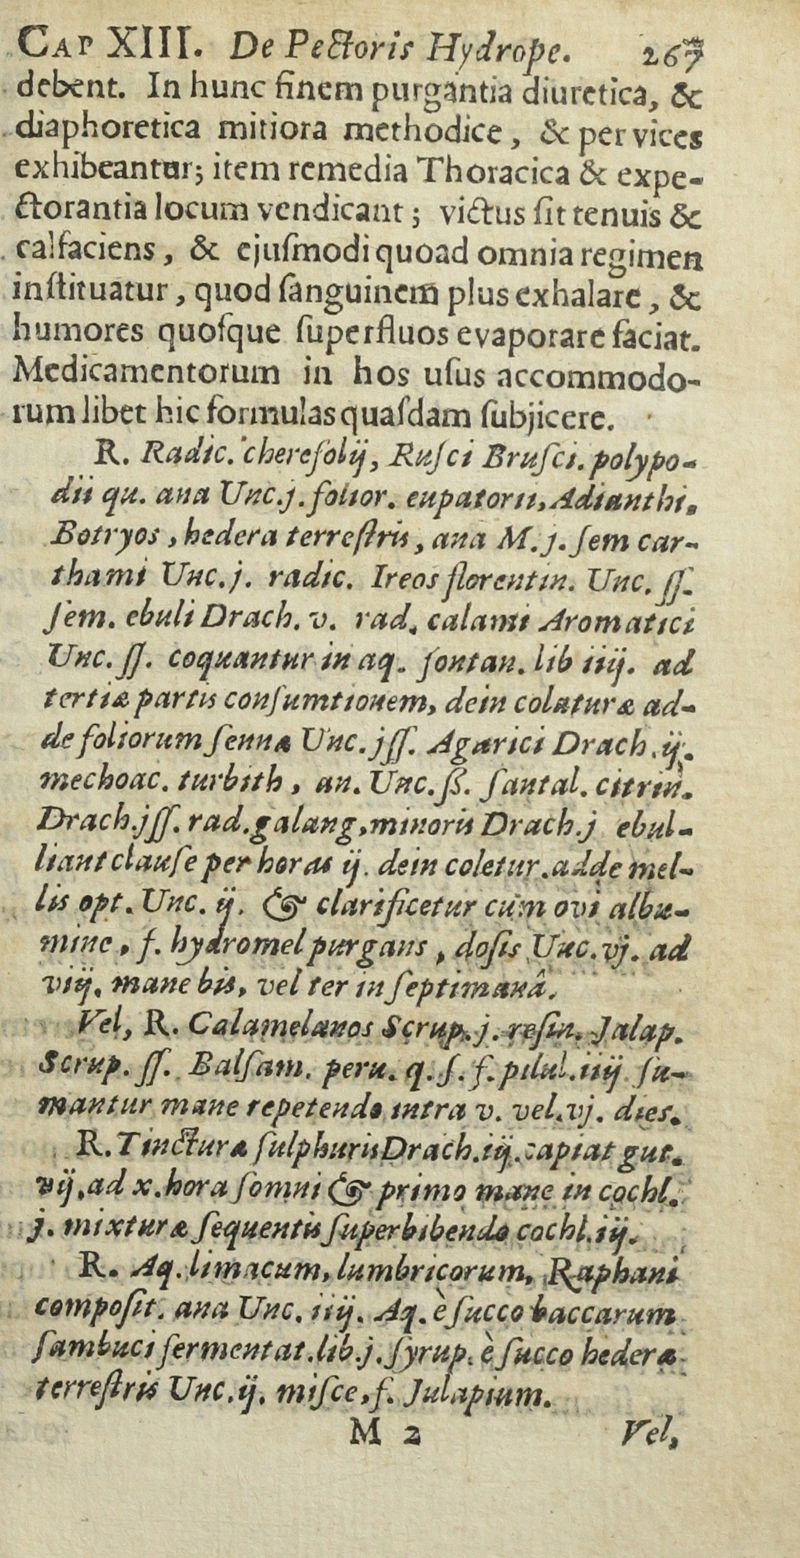 CAP XIII. De Pectoris Hydrope. 267
debent. In hunc finem purgantia diuretica, &
diaphoretica mitiora methodice, & per vices
exhibeantur; item remedia Thoracica & expe-
ctorantia locum vendicant; victus ſit tenuis &
calfaciens, & ejuſmodi quoad omnia regimen
inſtituatur, quod ſanguinem plus exhalare, &
humores quoſque ſuperfluos evaporare faciat.
Medicamentorum in hos uſus accommodo-
rum libet hic formulas quaſdam ſubjicere.
R. Radic. chereſolij, Ruſci Bruſci. polypo-
dii qu. ana Unc.j. folior. eupatorii, Adianthi,
Botryos, hedera terreſtris, ana M.j. ſem car-
thami Unc.j. radic. Ireos florentin. Unc. ſſ.
ſem. ebuli Drach. v. rad. calami Aromatici
Unc. ſſ. coquantur in aq. fontan. lib iiij. ad
tertiæ partis conſumtionem, dein colaturæ ad-
de foliorum ſenna Unc.jſſ. Agarici Drach.ij.
mechoac. turbith, an. Unc. ß. ſantal. citrin.
Drach.jſſ. rad. galang, minoris Drach.j ebul-
liant clauſe per horas ij. dein coletur. adde mel-
lis opt. Unc. ij. & clarificetur cum ovi albu-
mine, f. hydromel purgans, doſis Unc. vj. ad
viij, mane bis, vel ter in ſeptimanâ.
Vel, R. Calamelanos Scrup. j. reſin. Jalap.
Scrup. ſſ. Balſam. peru. q. ſ. f. pilul. iiij ſu-
mantur mane repetendo intra v. vel. vj. dies.
R. Tinctura ſulphuris Drach. iij. capiat gut.
vij, ad x. hora ſomni & primo mane in cochl.
j. mixturæ ſequentis ſuperbibendo cochl. iij.
R. Aq. limacum, lumbricorum, Raphani
compoſit. ana Unc. iiij. Aq. è ſucco baccarum
ſambuci fermentat. lib.j. ſyrup. è ſucco hederæ
terreſtris Unc. ij. miſce, f. Julapium.
M 2 Vel,